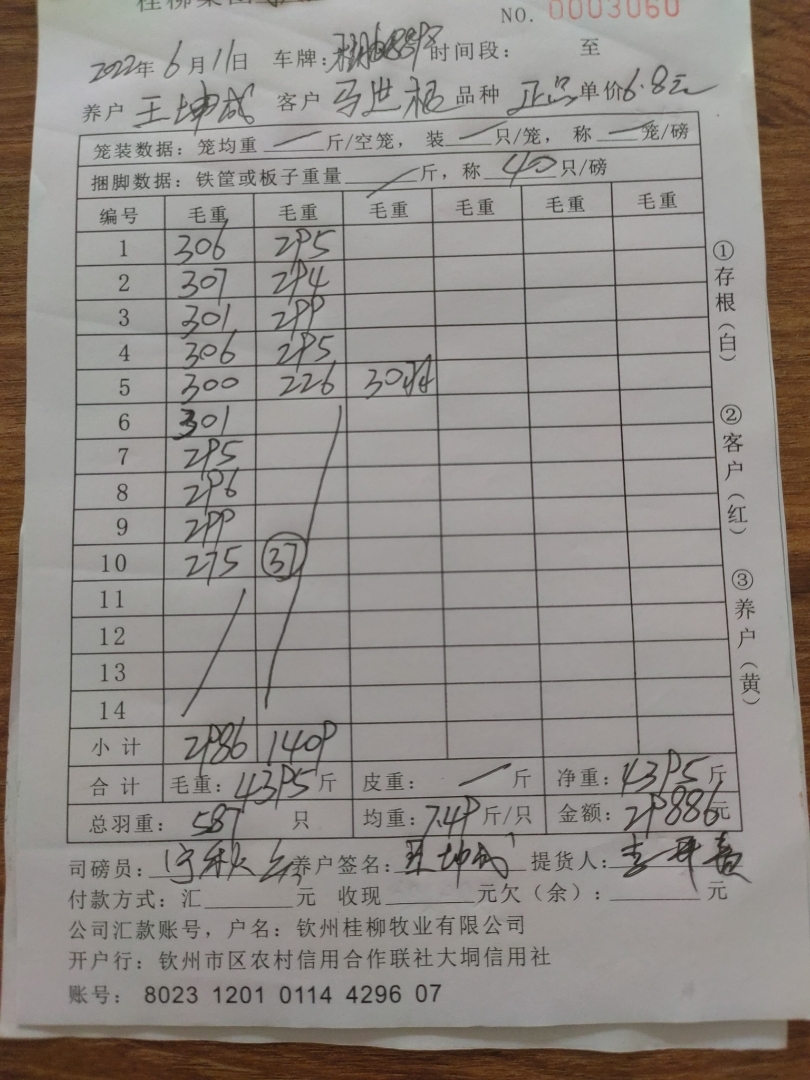 NO. 0003060
2022年6月11日 车牌: 时间段: 至
养户 王坤成 客户 马世松 品种 正品 单价 6.8元
笼装数据: 笼均重 — 斤/空笼, 装 — 只/笼, 称 — 笼/磅
捆脚数据: 铁筐或板子重量 — 斤, 称 40 只/磅
编号 毛重 毛重 毛重 毛重 毛重 毛重
1 306 295
2 307 294
3 301 299
4 306 295
5 300 226 30只
6 301
7 295
8 296
9 299
10 275 37
11
12
13
14
小计 2986 1409
合计 毛重: 4395斤 皮重: — 斤 净重: 4395斤
总羽重: 587 只 均重: 7.49斤/只 金额: 29886元
司磅员: 养户签名: 王坤成 提货人:
付款方式: 汇 元 收现 元欠(余): 元
公司汇款账号, 户名: 钦州桂柳牧业有限公司
开户行: 钦州市区农村信用合作联社大垌信用社
账号: 8023 1201 0114 4296 07
①存根(白)
②客户(红)
③养户(黄)